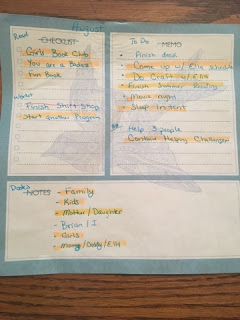 August
Read
CHECKLIST
Girls Book Club
You are a Badass
Fun Book
Finish Shift Shop
Start another Program
To Do
MEMO
Finish desk
Come up w/ Ella
Do Craft w/ Ella
Finish Summer Reading
Movie night
Sleep in tent
Help 3 people
Continue Helping Challenge
Dates
NOTES
- Family
- Kids
- Mother / Daughter
- / I
- Girls
- Mommy / Daddy / Ella